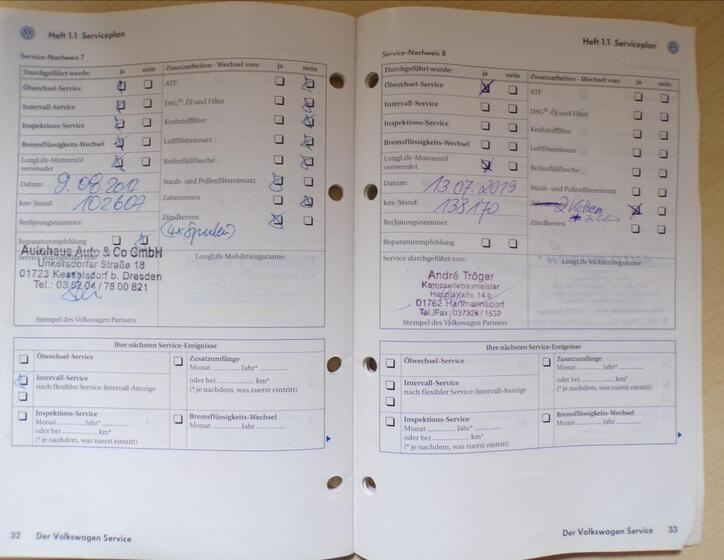 Heft 1.1 Serviceplan
Service-Nachweis 7
Durchgeführt wurde: ja nein
Ölwechsel-Service
Intervall-Service
Inspektions-Service
Bremsflüssigkeits-Wechsel
LongLife-Motorenöl
verwendet
Datum: 9.08.2012
km- Stand: 102607
Rechnungsnummer:
Reparaturempfehlung
Zusatzarbeiten - Wechsel von: ja nein
ATF
DSG®: Öl und Filter
Kraftstofffilter
Luftfiltereinsatz
Reifenfüllflasche
Staub- und Pollenfiltereinsatz
Zahnriemen
Zündkerzen
(4x Spulen)
Service durchgeführt von:
Autohaus Auto & Co GmbH
Unkersdorfer Straße 18
01723 Kesselsdorf b. Dresden
Tel.: 03 52 04 / 78 00 821
Stempel des Volkswagen Partners
LongLife Mobilitätsgarantie:
Ihre nächsten Service-Ereignisse
Ölwechsel-Service
Intervall-Service
nach flexibler Service-Intervall-Anzeige
Inspektions-Service
Monat Jahr*
oder bei km*
(* je nachdem, was zuerst eintritt)
Zusatzumfänge
Monat Jahr*
oder bei km*
(* je nachdem, was zuerst eintritt)
Bremsflüssigkeits-Wechsel
Monat Jahr
32 Der Volkswagen Service
Heft 1.1 Serviceplan
Service-Nachweis 8
Durchgeführt wurde: ja nein
Ölwechsel-Service
Intervall-Service
Inspektions-Service
Bremsflüssigkeits-Wechsel
LongLife-Motorenöl
verwendet
Datum: 13.07.2019
km- Stand: 138170
Rechnungsnummer:
Reparaturempfehlung
Zusatzarbeiten - Wechsel von: ja nein
ATF
DSG®: Öl und Filter
Kraftstofffilter
Luftfiltereinsatz
Reifenfüllflasche
Staub- und Pollenfiltereinsatz
Zündkerzen
Service durchgeführt von:
André Tröger
Karosseriebaumeister
Hauptstraße 14 b
01762 Hartmannsdorf
Tel./Fax: 037326 / 1532
Stempel des Volkswagen Partners
LongLife Mobilitätsgarantie
Ihre nächsten Service-Ereignisse
Ölwechsel-Service
Intervall-Service
nach flexibler Service-Intervall-Anzeige
Inspektions-Service
Monat Jahr*
oder bei km*
(* je nachdem, was zuerst eintritt)
Zusatzumfänge
Monat Jahr*
oder bei km*
(* je nachdem, was zuerst eintritt)
Bremsflüssigkeits-Wechsel
Monat Jahr
Der Volkswagen Service 33